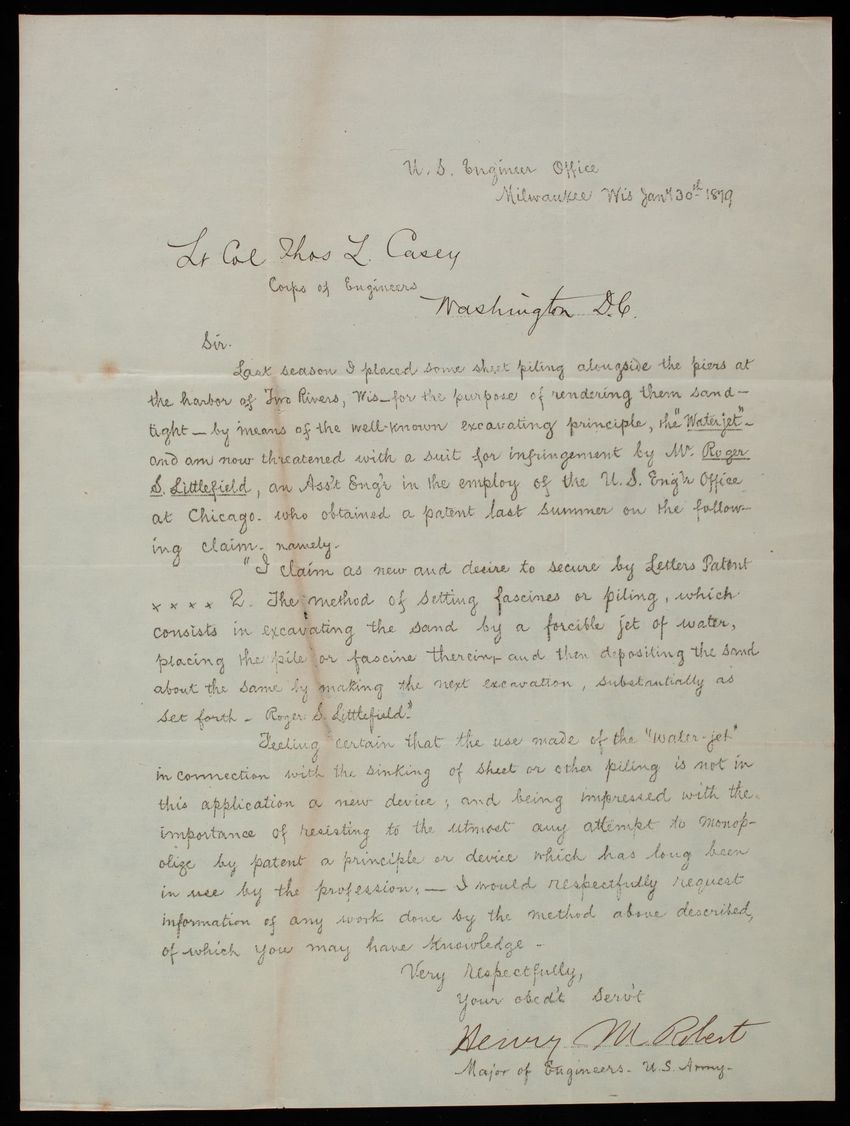 U. S. Engineer Office
Milwaukee Wis Jany 30th 1879
Lt Col Thos L. Casey
Corps of Engineers
Washington D.C.
Sir.
Last season I placed some sheet piling alongside the piers at
the harbor of Two Rivers, Wis – for the purpose of rendering them sand-
tight – by means of the well-known excavating principle, the "Water jet" –
and am now threatened with a suit for infringement by Mr. Roger
S. Littlefield, an Ass't Eng'r in the employ of the U.S. Eng'r Office
at Chicago. who obtained a patent last summer on the follow-
ing claim. namely.
"I claim as new and desire to secure by Letters Patent
x x x x 2. The method of setting fascines or piling, which
consists in excavating the sand by a forcible jet of water,
placing the pile or fascine therein, and then depositing the sand
about the same by making the next excavation, substantially as
set forth – Roger S. Littlefield."
Feeling certain that the use made of the "water-jet"
in connection with the sinking of sheet or other piling is not in
this application a new device; and being impressed with the
importance of resisting to the utmost any attempt to monop-
olize by patent a principle or device which has long been
in use by the profession, — I would respectfully request
information of any work done by the method above described,
of which you may have knowledge –
Very respectfully,
Your obed't serv't
Henry M. Robert
Major of Engineers. U.S. Army.